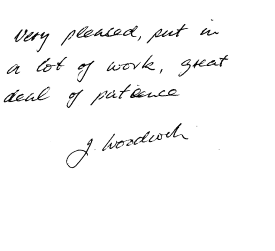 Very pleased, put in
a lot of work, great
deal of patience
J. Woodcock